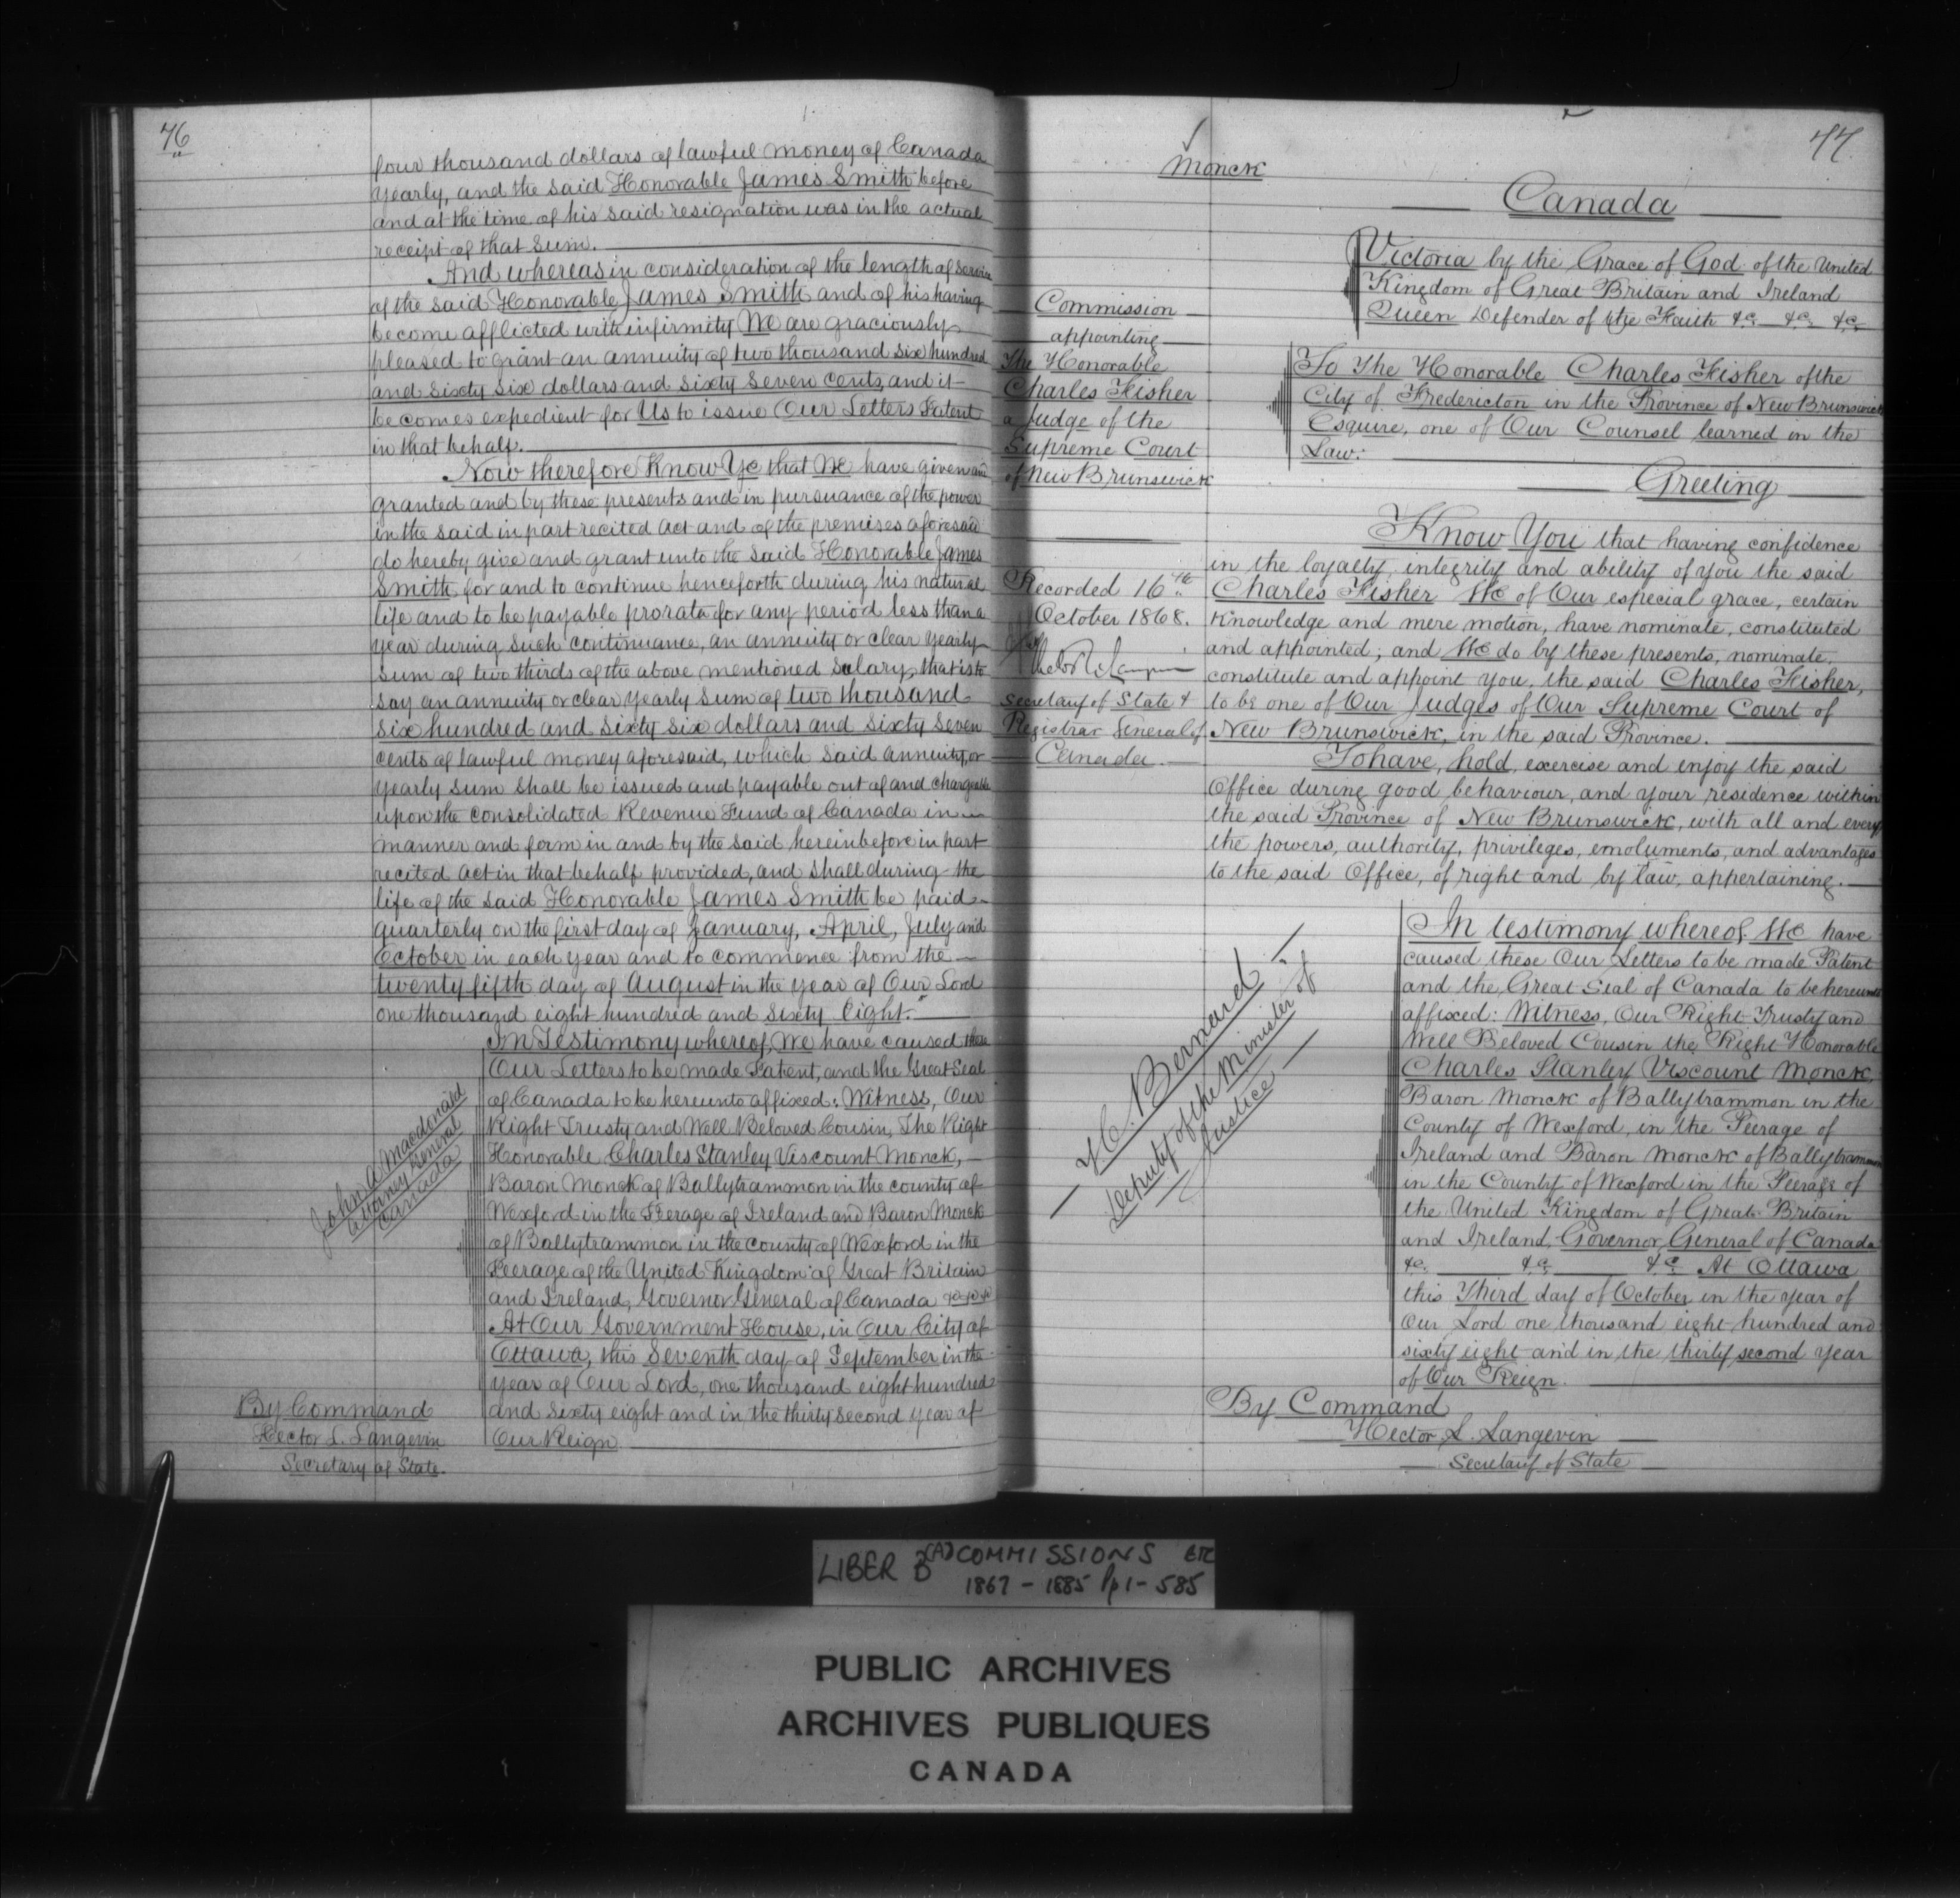 76
four thousand dollars of lawful money of Canada
yearly, and the said Honorable James Smith before
and at the time of his said resignation was in the actual
receipt of that sum.
And whereas in consideration of the length of service
of the said Honorable James Smith and of his having
become afflicted with infirmity We are graciously
pleased to grant an annuity of two thousand six hundred
and sixty six dollars and sixty seven cents, and it
becomes expedient for Us to issue Our Letters Patent
in that behalf.
Now therefore Know Ye that We have given and
granted and by these presents and in pursuance of the power
in the said in part recited Act and of the premises aforesaid
do hereby give and grant unto the said Honorable James
Smith for and to continue henceforth during his natural
life and to be payable prorata for any period less than a
year during such continuance, an annuity or clear yearly
sum of two thirds of the above mentioned salary, that is to
say an annuity or clear yearly sum of two thousand
six hundred and sixty six dollars and sixty seven
cents of lawful money aforesaid, which said annuity or
yearly sum shall be issued and payable out of and chargeable
upon the consolidated Revenue Fund of Canada in
manner and form in and by the said hereinbefore in part
recited Act in that behalf provided, and shall during the
life of the said Honorable James Smith be paid
quarterly on the first day of January, April, July and
October in each year and to commence from the
twenty fifth day of August in the year of Our Lord
one thousand eight hundred and sixty eight.
In Testimony whereof, We have caused these
Our Letters to be made Patent, and the Great Seal
of Canada to be hereunto affixed: Witness, Our
Right Trusty and Well Beloved Cousin, The Right
Honorable Charles Stanley Viscount Monck,
Baron Monck of Ballytrammon in the county of
Wexford in the Peerage of Ireland and Baron Monck
of Ballytrammon in the county of Wexford in the
Peerage of the United Kingdom of Great Britain
and Ireland, Governor General of Canada &c &c &c
At Our Government House, in Our City of
Ottawa, this Seventh day of September in the
year of Our Lord, one thousand eight hundred
and sixty eight and in the thirty second year of
Our Reign
John A Macdonald
Attorney General
Canada
By Command
Hector L. Langevin
Secretary of State.
77
Monck
Canada
Victoria by the Grace of God of the United
Kingdom of Great Britain and Ireland
Queen Defender of the Faith &c &c &c
Commission
appointing
The Honorable
Charles Fisher
a Judge of the
Supreme Court
of New Brunswick
To The Honorable Charles Fisher of the
City of Fredericton in the Province of New Brunswick
Esquire, one of Our Counsel learned in the
Law:
Greeting
Know You that having confidence
in the loyalty, integrity and ability of you the said
Charles Fisher We of Our especial grace, certain
knowledge and mere motion, have nominate, constituted
and appointed; and We do by these presents, nominate,
constitute and appoint you, the said Charles Fisher,
to be one of Our Judges of Our Supreme Court of
New Brunswick, in the said Province.
To have, hold, exercise and enjoy the said
Office during good behaviour, and your residence within
the said Province of New Brunswick, with all and every
the powers, authority, privileges, emoluments, and advantages
to the said Office, of right and by law, appertaining.
Recorded 16th
October 1868.
Secretary of State &
Registrar General of
Canada.
In testimony whereof, We have
caused these Our Letters to be made Patent
and the Great Seal of Canada to be hereunto
affixed: Witness, Our Right Trusty and
Well Beloved Cousin the Right Honorable
Charles Stanley Viscount Monck,
Baron Monck of Ballytrammon in the
County of Wexford, in the Peerage of
Ireland and Baron Monck of Ballytrammon
in the County of Wexford in the Peerage of
the United Kingdom of Great Britain
and Ireland, Governor General of Canada
&c. &c. &c At Ottawa
this Third day of October in the year of
Our Lord one thousand eight hundred and
sixty eight and in the thirty second year
of Our Reign.
H. C. Bernard
Deputy of the Minister of
Justice
By Command
Hector L. Langevin
Secretary of State
LIBER B(A) COMMISSIONS ETC
1867 - 1885 Pp 1 - 585
PUBLIC ARCHIVES
ARCHIVES PUBLIQUES
CANADA